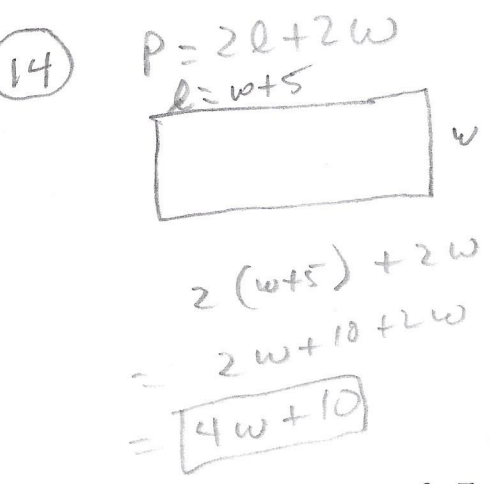 14
P = 2l + 2w
l = w+5
w
2 (w+5) + 2w
= 2w + 10 + 2w
= 4w + 10